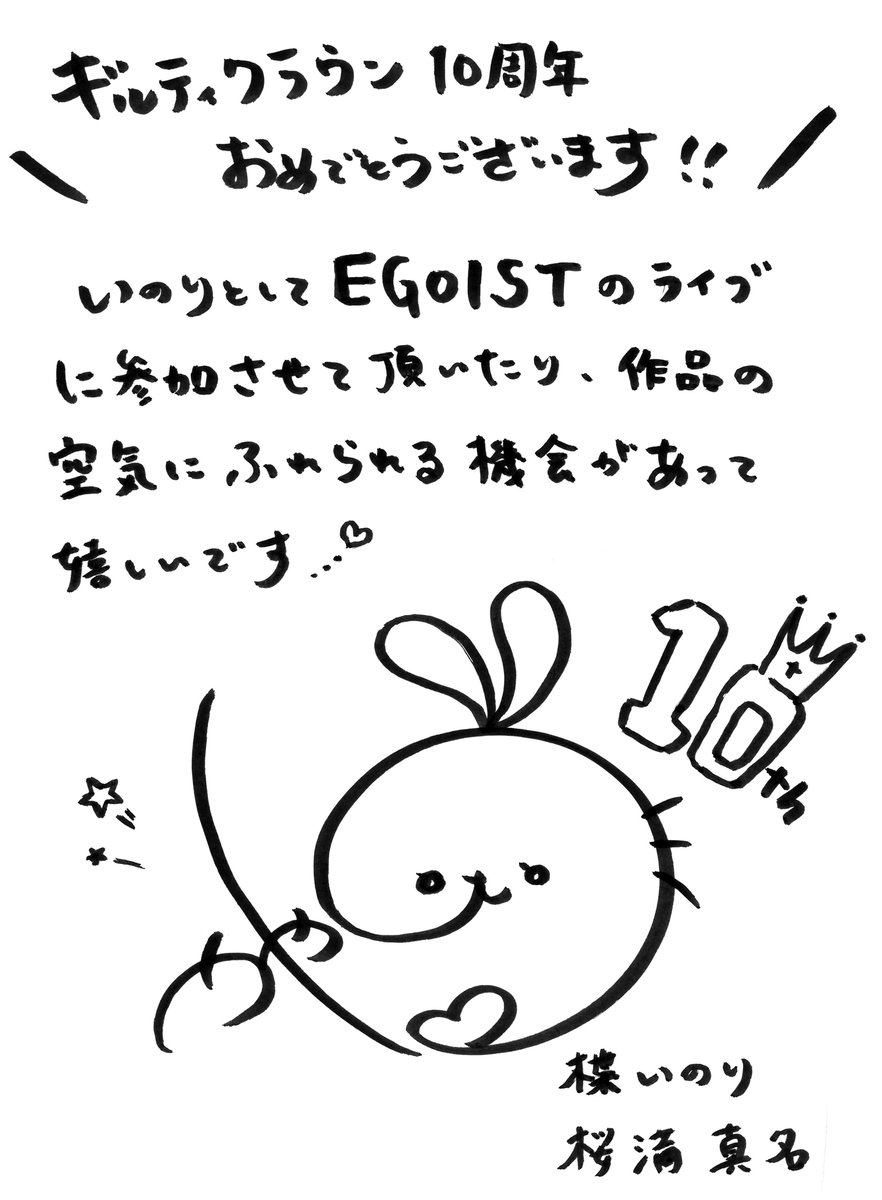 ギルティクラウン 10周年
おめでとうございます!!
いのりとして EGOIST のライブ
に参加させて頂いたり、作品の
空気にふれられる機会があって
嬉しいです…♡
10th
楪いのり
桜満真名